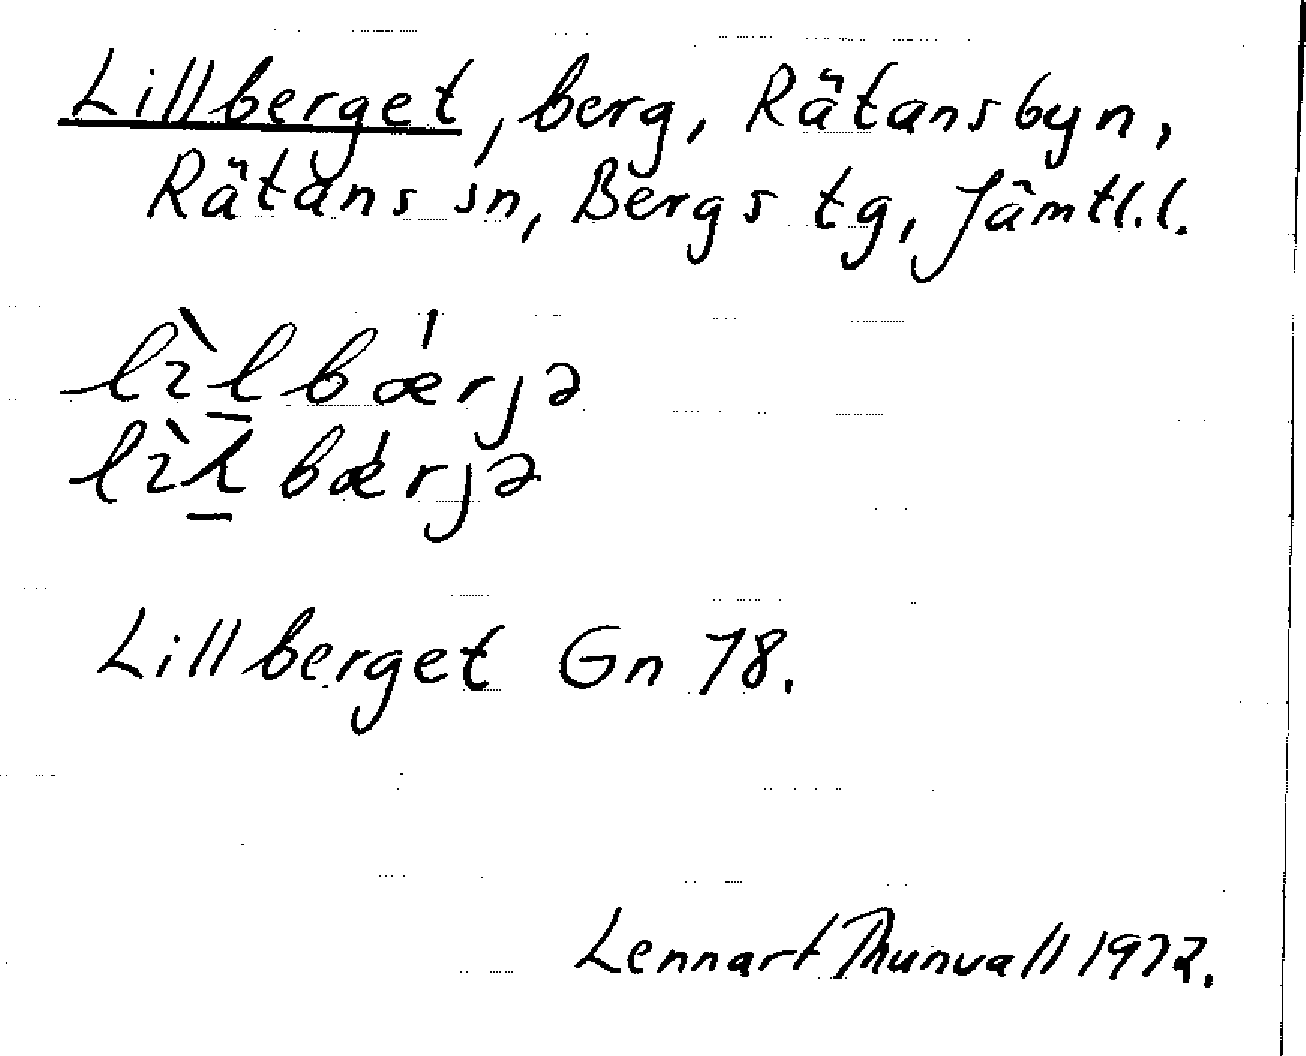 Lillberget, berg, Rätansbyn,
Rätans sn, Bergs tg, Jämtl.l.
lìl̠bǽrjə
lìʎ̠bǽrjə
Lillberget Gn 78.
Lennart Thunvall 1972.